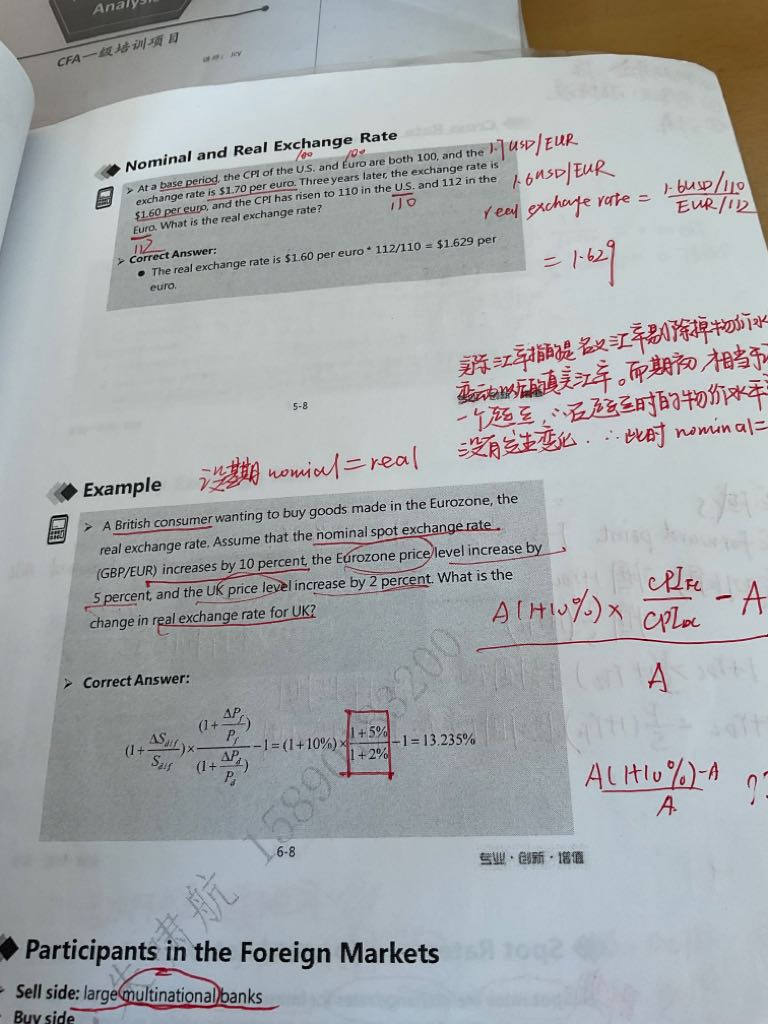 Analysis
CFA一级培训项目
讲师: Icy
Nominal and Real Exchange Rate
100 100
➢ At a base period, the CPI of the U.S. and Euro are both 100, and the
exchange rate is $1.70 per euro. Three years later, the exchange rate is
$1.60 per euro, and the CPI has risen to 110 in the U.S. and 112 in the
Euro. What is the real exchange rate?
110
112
➢ Correct Answer:
● The real exchange rate is $1.60 per euro * 112/110 = $1.629 per
euro.
1.7 USD/EUR
1.6 USD/EUR
real exchange rate = 1.6USD/110
EUR/112
= 1.629
5-8
实际汇率指的是名义汇率剔除掉物价水
变动以后的真实汇率。而期初相当于
一个起点, ∴在起点时的物价水平
没有发生变化. ∴此时 nominal=
没基期 nomial = real
Example
➢ A British consumer wanting to buy goods made in the Eurozone, the
real exchange rate. Assume that the nominal spot exchange rate
(GBP/EUR) increases by 10 percent, the Eurozone price level increase by
5 percent, and the UK price level increase by 2 percent. What is the
change in real exchange rate for UK?
A(1+10%) × CPI_FC / CPI_DC − A
A
➢ Correct Answer:
(1+ΔS_d/f / S_d/f)×(1+ΔP_f / P_f) / (1+ΔP_d / P_d) −1=(1+10%)×(1+5%) / (1+2%) −1=13.235%
A(1+10%)−A
A
??
6-8
专业·创新·增值
Participants in the Foreign Markets
Sell side: large multinational banks
Buy side